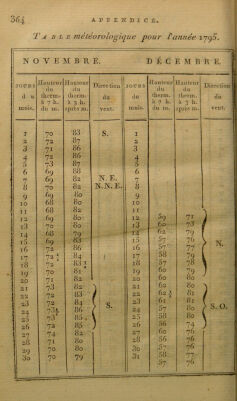 364 APPENDICE.
TABLE météorologique pour l'année 1795.
NOVEMBRE. DÉCEMBRE.
JOURS du mois. Hauteur du therm. à 7 h. du m. Hauteur du therm. à 3 h. après m. Direction du vent. JOURS du mois. Hauteur du therm. à 7 h. du m. Hauteur du therm. à 3 h. après m. Direction du vent.
1 70 83 S. 1
2 72 87 2
3 71 86 3
4 72 86 4
5 73 87 5
6 69 88 6
7 69 82 N. E. 7
8 70 82 N. N. E. 8
9 69 80 9
10 68 80 10
11 68 82 11
12 69 80 12 59 71
13 70 80 13 60 73
14 68 79 14 62 79
15 69 83 15 57 76
16 16 57 77 N.
17 84 17 58 79
18 72 83 18 57 78
19 70 81 19 60 79
20 71 82 20
21 73 82 21 62 80
22 72 83 22 62 81
23 72 84 S. 23 62 S. O.
24 86 24 57 80
25 73 85 25 58 80
26 72 85 26 56 74
27 74 27 60 76
28 71 80 28 56 76
29 70 80 29 57 76
30 70 79 30 58 77
31 57 76